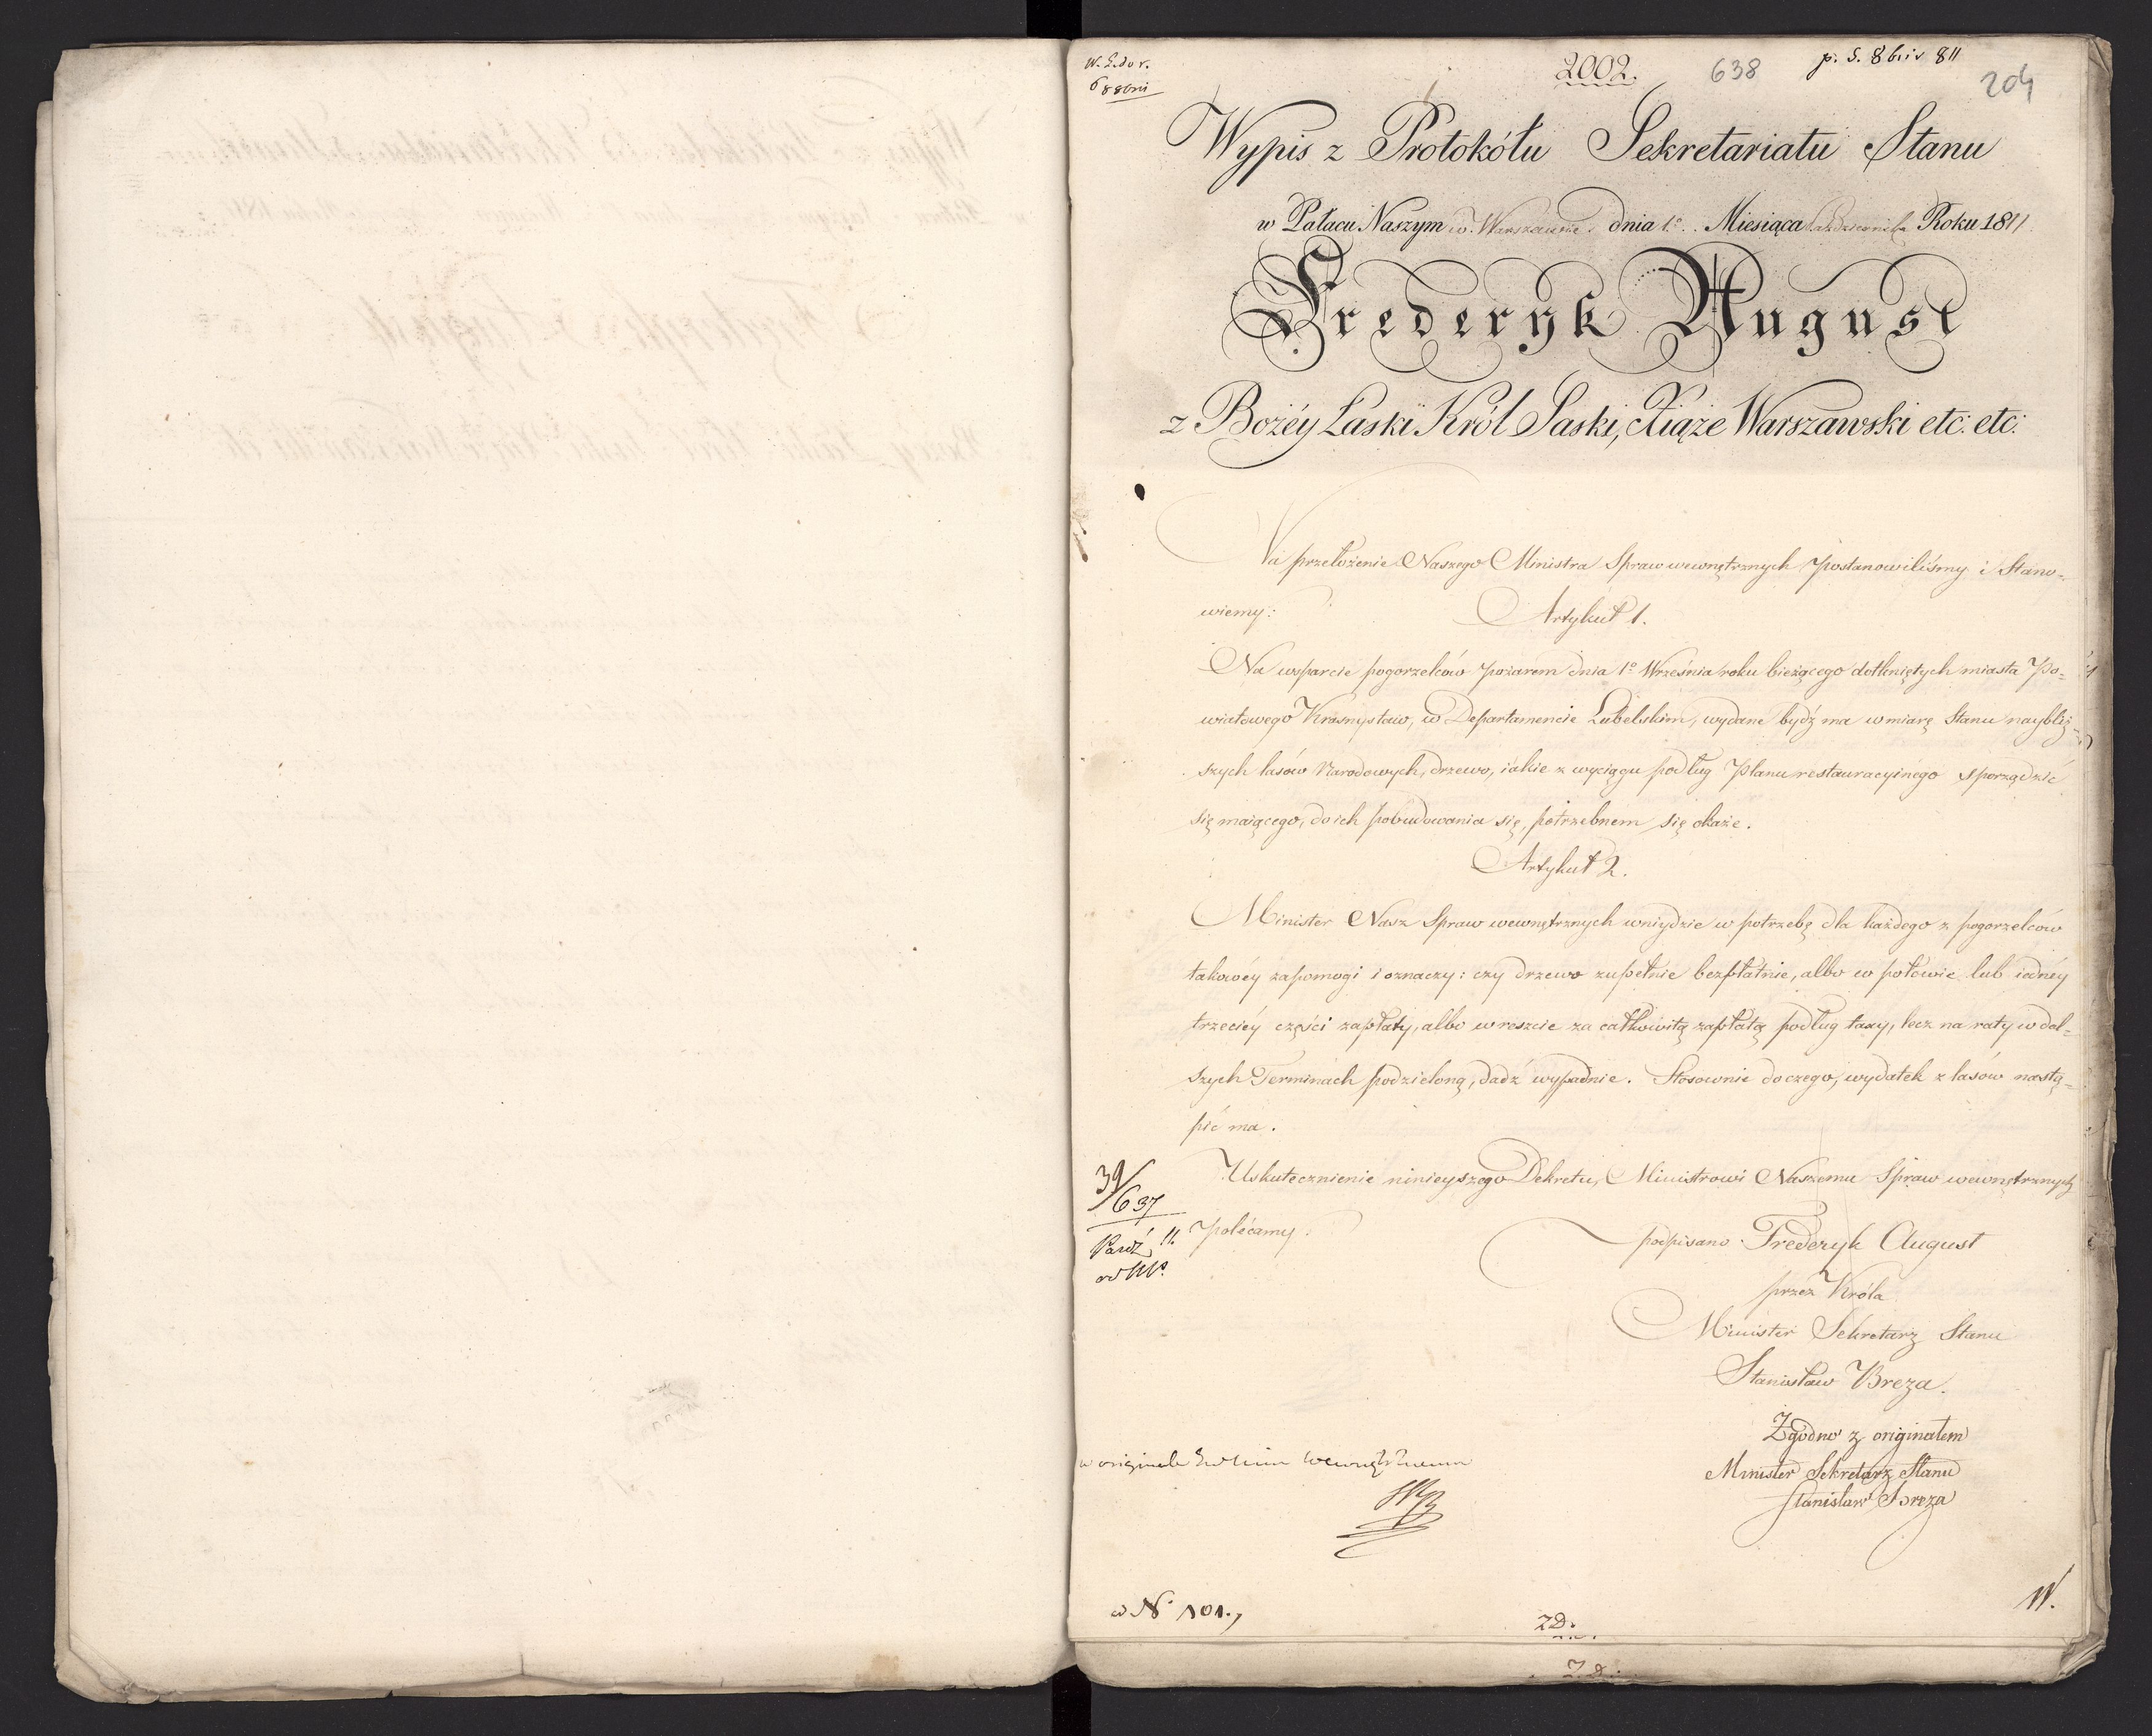 2002. 638 p. 5. 8briv 811
204
Wypis z Protokółu Sekretariatu Stanu
w Pałacu Naszym w Warszawie dnia 1º Miesiąca Października Roku 1811
Frederyk August
z Bożéy Łaski Król Saski, Xiąże Warszawski etc: etc:
Na przełożenie Naszego Ministra Spraw wewnętrznych postanowiliśmy i Stano=
wiemy:
Artykuł 1.
Na wsparcie pogorzelców pożarem dnia 1º Września roku bieżącego dotkniętych miasta Po=
wiatowego Krasnystaw, w Departamencie Lubelskim, wydane bydź ma w miarę Stanu naybliż=
szych lasów Narodowych, drzewo, iakie z wyciągu podług Planu restauracyinego sporządzić
się maiącego, do ich pobudowania się, potrzebnem się okaże.
Artykuł 2.
Minister Nasz Spraw wewnętrznych wniydzie w potrzebę dla każdego z pogorzelców
takowéy zapomogi i oznaczy: czy drzewo zupełnie bezpłatnie, albo w połowie lub iednéy
trzeciéy części zapłaty, albo wreszcie za całkowitą zapłatą podług taxy, lecz na raty w dal=
szych Terminach podzieloną, dadź wypadnie. Stosownie do czego, wydatek z lasów nastą=
pić ma.
Uskutecznienie ninieyszego Dekretu, Ministrowi Naszemu Spraw wewnętrznych
polécamy.
39/637
podpisano Frederyk August
przez Króla
Minister Sekretarz Stanu
Stanisław Breza.
Zgodno z originałem
Minister Sekretarz Stanu
Stanisław Breza
w originale
w Nº 101.,
2D.
W.